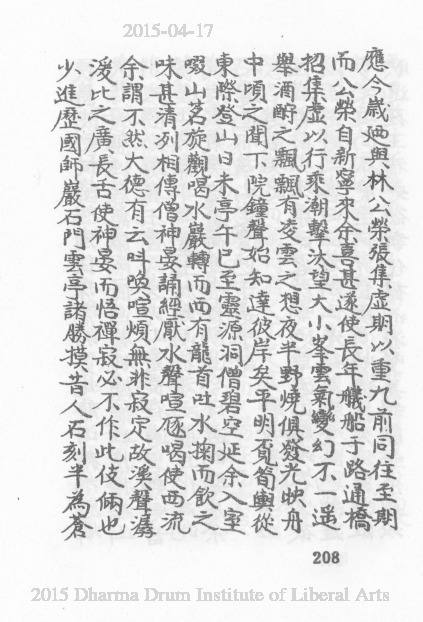 2015-04-17
應今歲廼與林公榮張集虛期以重九前同往至期
而公榮自新寧來余喜甚遂使長年艤船于路通橋
招集虛以行乘潮擊汰望大小峯雲氣變幻不一遥
舉酒酹之飄飄有凌雲之想夜半野燒俱發光映舟
中頃之聞下院鐘聲始知達彼岸矣平明覔筍輿從
東際登山日未亭午已至靈源洞僧碧空延余入室
啜山茗旋觀喝水巖轉而西有龍首吐水掬而飲之
味甚清冽相傳僧神晏誦經厭水聲喧豗喝使西流
余謂不然大德有云呌喚喧煩無非寂定故溪聲潺
湲比之廣長舌使神晏而悟禪寂必不作此伎倆也
少進歷國師巖石門雲亭諸勝摸昔人石刻半為蒼
208
2015 Dharma Drum Institute of Liberal Arts